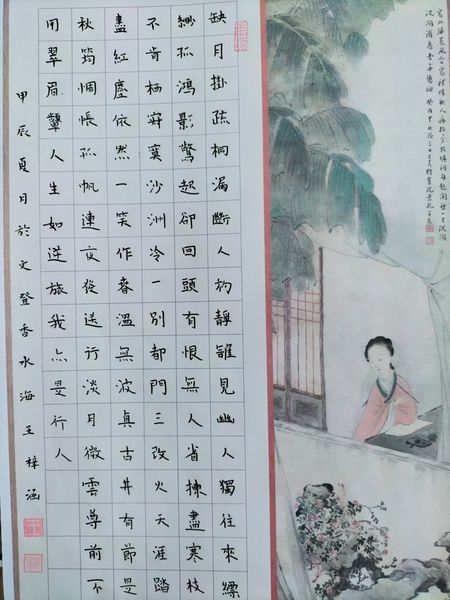 缺月掛疏桐漏斷人初靜誰見幽人獨往來縹
緲孤鴻影驚起卻回頭有恨無人省揀盡寒枝
不肯栖寂寞沙洲冷一別都門三改火天涯踏
盡紅塵依然一笑作春溫無波真古井有節是
秋筠惆悵孤帆連夜發送行淡月微雲尊前不
用翠眉顰人生如逆旅我亦是行人
甲辰夏月於文登香水海王梓涵